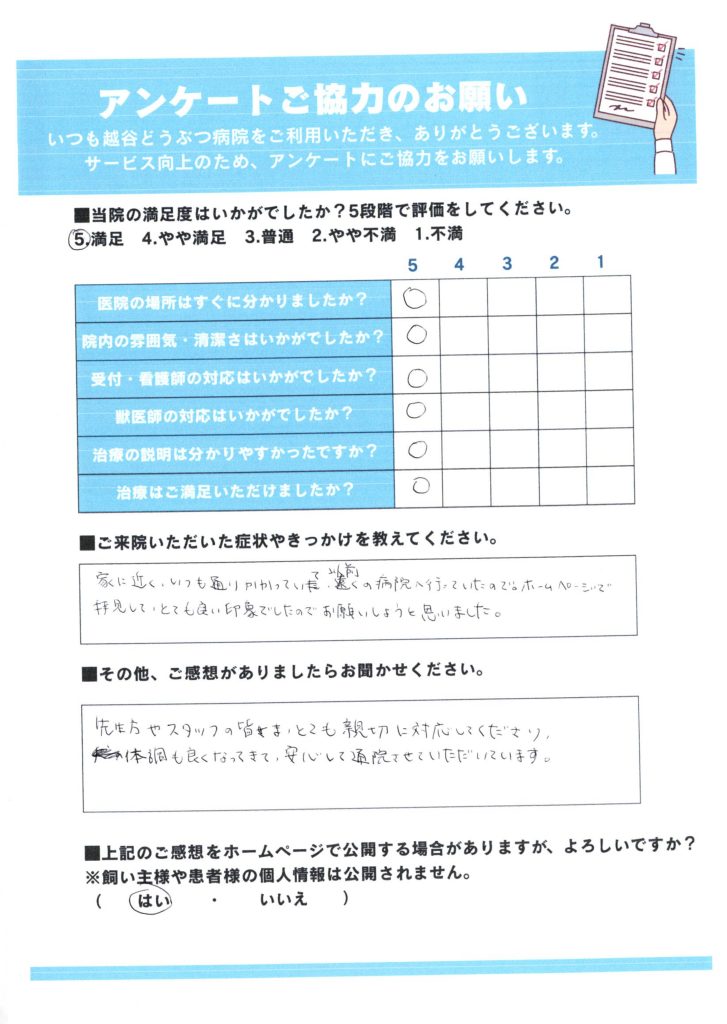 アンケートご協力のお願い
いつも越谷どうぶつ病院をご利用いただき、ありがとうございます。
サービス向上のため、アンケートにご協力をお願いします。
■当院の満足度はいかがでしたか？5段階で評価をしてください。
5.満足 4.やや満足 3.普通 2.やや不満 1.不満
5 4 3 2 1
医院の場所はすぐに分かりましたか？ ○
院内の雰囲気・清潔さはいかがでしたか？ ○
受付・看護師の対応はいかがでしたか？ ○
獣医師の対応はいかがでしたか？ ○
治療の説明は分かりやすかったですか？ ○
治療はご満足いただけましたか？ ○
■ご来院いただいた症状やきっかけを教えてください。
家に近く、いつも通りかかっていて、以前遠くの病院へ行っていたのでホームページで
拝見して、とても良い印象でしたのでお願いしようと思いました。
■その他、ご感想がありましたらお聞かせください。
先生方やスタッフの皆さま、とても親切に対応してくださり、
体調も良くなってきて、安心して通院させていただいています。
■上記のご感想をホームページで公開する場合がありますが、よろしいですか？
※飼い主様や患者様の個人情報は公開されません。
（ はい ・ いいえ ）